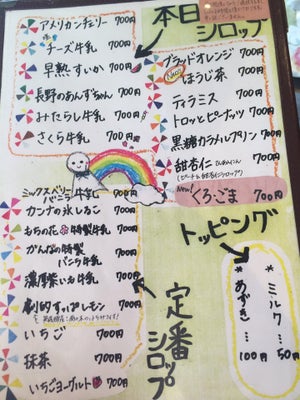 本日シロップ
アメリカンチェリー 700円
チーズ牛乳 700円
早熟すいか 700円
長野のあんずちゃん 700円
みたらし牛乳 700円
さくら牛乳 700円
ブラッドオレンジ
New! ほうじ茶 700円
ティラミス 700円
トロッとピーナッツ 700円
黒糖カラメルプリン 700円
甜杏仁 700円
New! くろごま 700円
定番シロップ
ミックスベリー
バニラ牛乳 700円
カンナの氷しるこ 700円
おちの花 特製牛乳 700円
がんちゃんの特製
バニラ牛乳 700円
濃厚紫いも牛乳 700円
劇的すっぱレモン 700円
いちご 700円
抹茶 700円
いちごヨーグルト 700円
トッピング
*ミルク… 50円
*あずき… 100円